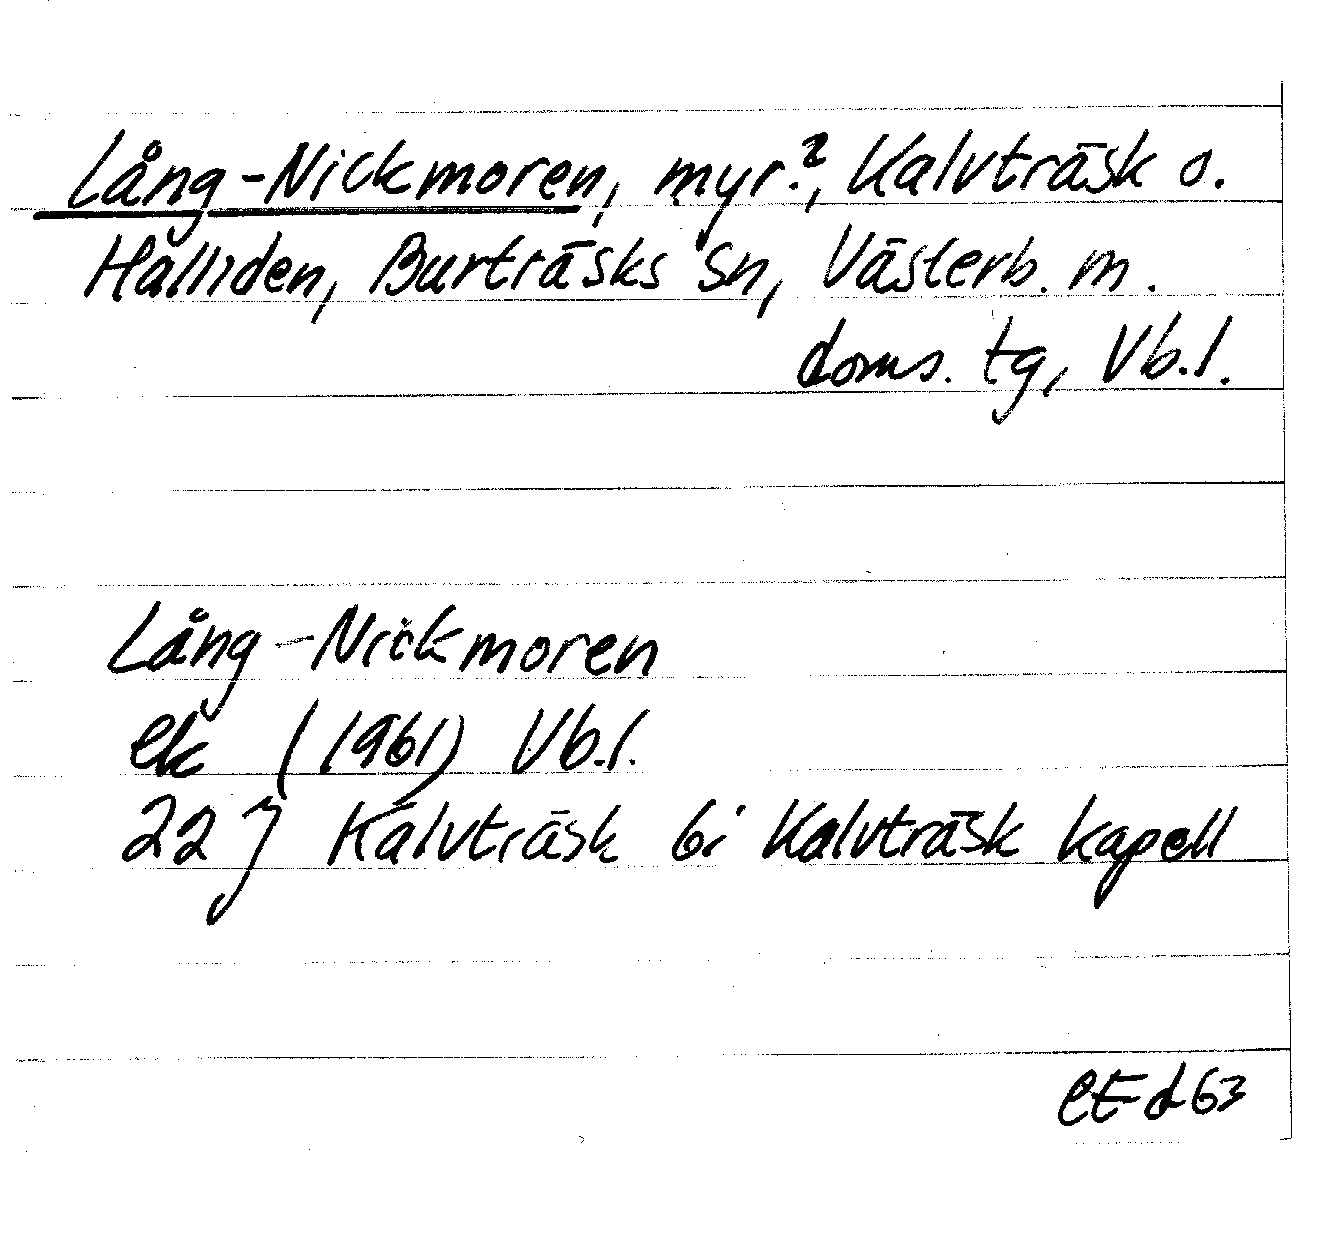 Lång-Nickmoren, myr.?, Kalvträsk o.
Hälliden, Burträsks sn, Västerb. m.
doms. tg, Vb.l.
Lång-Nickmoren
ek (1961) Vb.l.
22J Kalvträsk bi Kalvträsk kapell
63